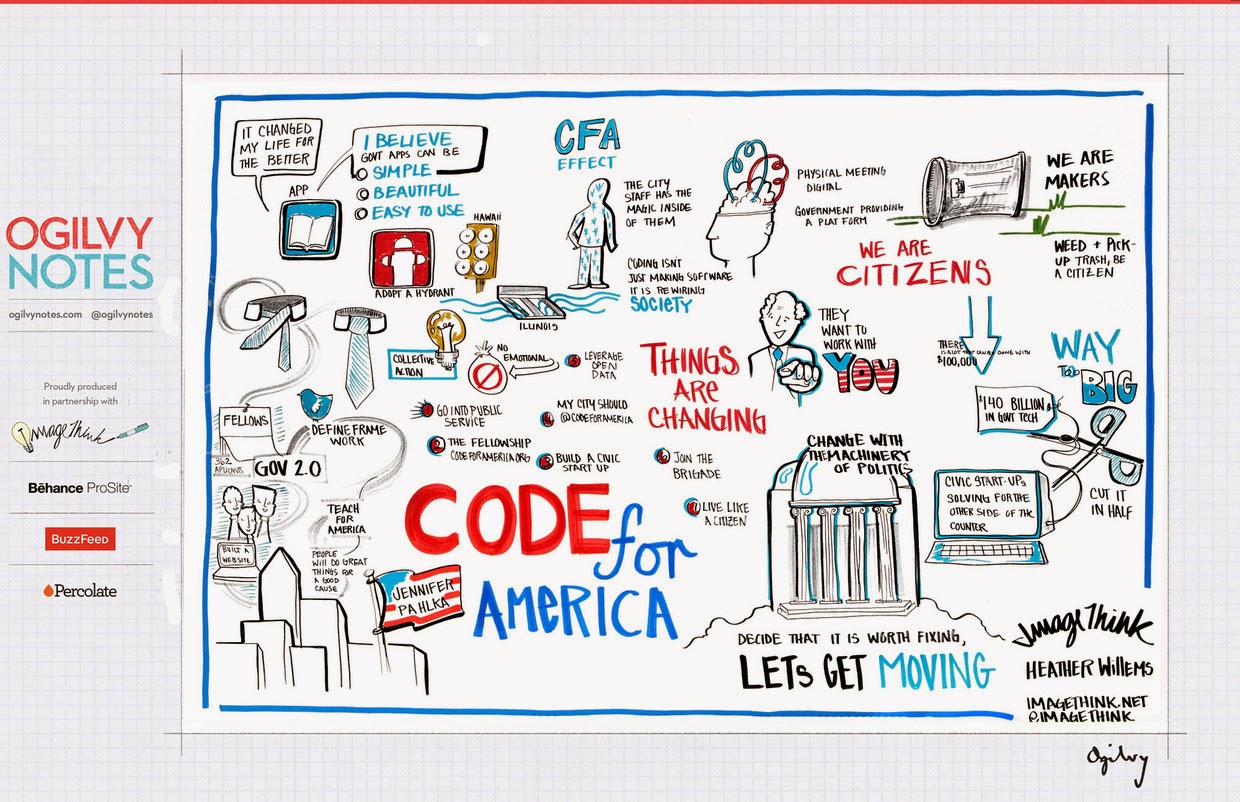 OGILVY
NOTES
ogilvynotes.com @ogilvynotes
Proudly produced
in partnership with
ImageThink
Bēhance ProSite
BuzzFeed
Percolate
IT CHANGED
MY LIFE FOR
THE BETTER
APP
I BELIEVE
GOVT APPS CAN BE
SIMPLE
BEAUTIFUL
EASY TO USE
ADOPT A HYDRANT
HAWAII
ILLINOIS
CFA
EFFECT
THE CITY
STAFF HAS THE
MAGIC INSIDE
OF THEM
CODING ISN'T
JUST MAKING SOFTWARE
IT IS REWIRING
SOCIETY
PHYSICAL MEETING
DIGITAL
GOVERNMENT PROVIDING
A PLATFORM
WE ARE
MAKERS
WEED + PICK-
UP TRASH, BE
A CITIZEN
WE ARE
CITIZENS
COLLECTIVE
ACTION
NO
EMOTIONAL
5 LEVERAGE
OPEN
DATA
THINGS
ARE
CHANGING
THEY
WANT TO
WORK WITH
YOU
THERE
IS A LOT THAT CAN BE DONE WITH
$100,000
WAY
TOO
BIG
$140 BILLION
IN GOVT TECH
CUT IT
IN HALF
FELLOWS
362
APLICANTS
DEFINE FRAME
WORK
GOV 2.0
1 GO INTO PUBLIC
SERVICE
2 THE FELLOWSHIP
CODEFORAMERICA.ORG
3 BUILD A CIVIC
START UP
4 MY CITY SHOULD
@CODEFORAMERICA
6 JOIN THE
BRIGADE
7 LIVE LIKE
A CITIZEN
BUILT A
WEBSITE
TEACH
FOR
AMERICA
PEOPLE
WILL DO GREAT
THINGS FOR
A GOOD
CAUSE
JENNIFER
PAHLKA
CODE for
AMERICA
CHANGE WITH
THE MACHINERY
OF POLITICS
CIVIC START-UPs
SOLVING FOR THE
OTHER SIDE OF THE
COUNTER
DECIDE THAT IT IS WORTH FIXING,
LETs GET MOVING
ImageThink
HEATHER WillEMS
IMAGETHINK.NET
@IMAGETHINK
Ogilvy